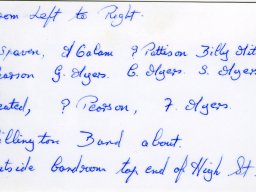 om Left to Right.
spaven, A Galam ? Pattison Billy Mit
earson G. Myers. C. Myers. S. Myers
eated, ? Pearson, F. Myers.
illington Band about.
utside bandroom top end of High St